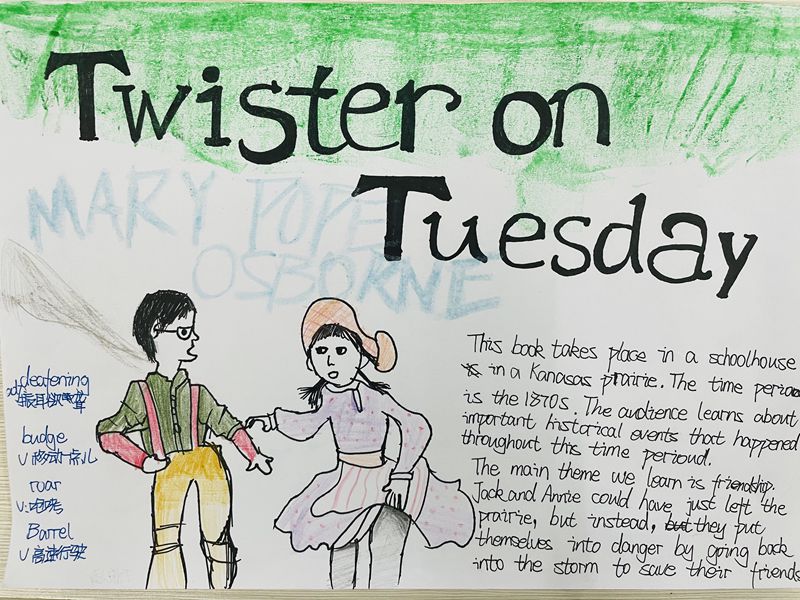 Twister on
Tuesday
MARY POPE
OSBORNE
deafening
adj 振耳欲聋
budge
v 移动一点儿
roar
v: 咆哮
Barrel
v 高速行驶
This book takes place in a schoolhouse
in a Kanasas prairie. The time perioud
is the 1870s. The audience learns about
important historical events that happened
throughout this time perioud.
The main theme we learn is friendship.
Jack and Annie could have just left the
prairie, but instead, but they put
themselves into danger by going back
into the storm to save their friends